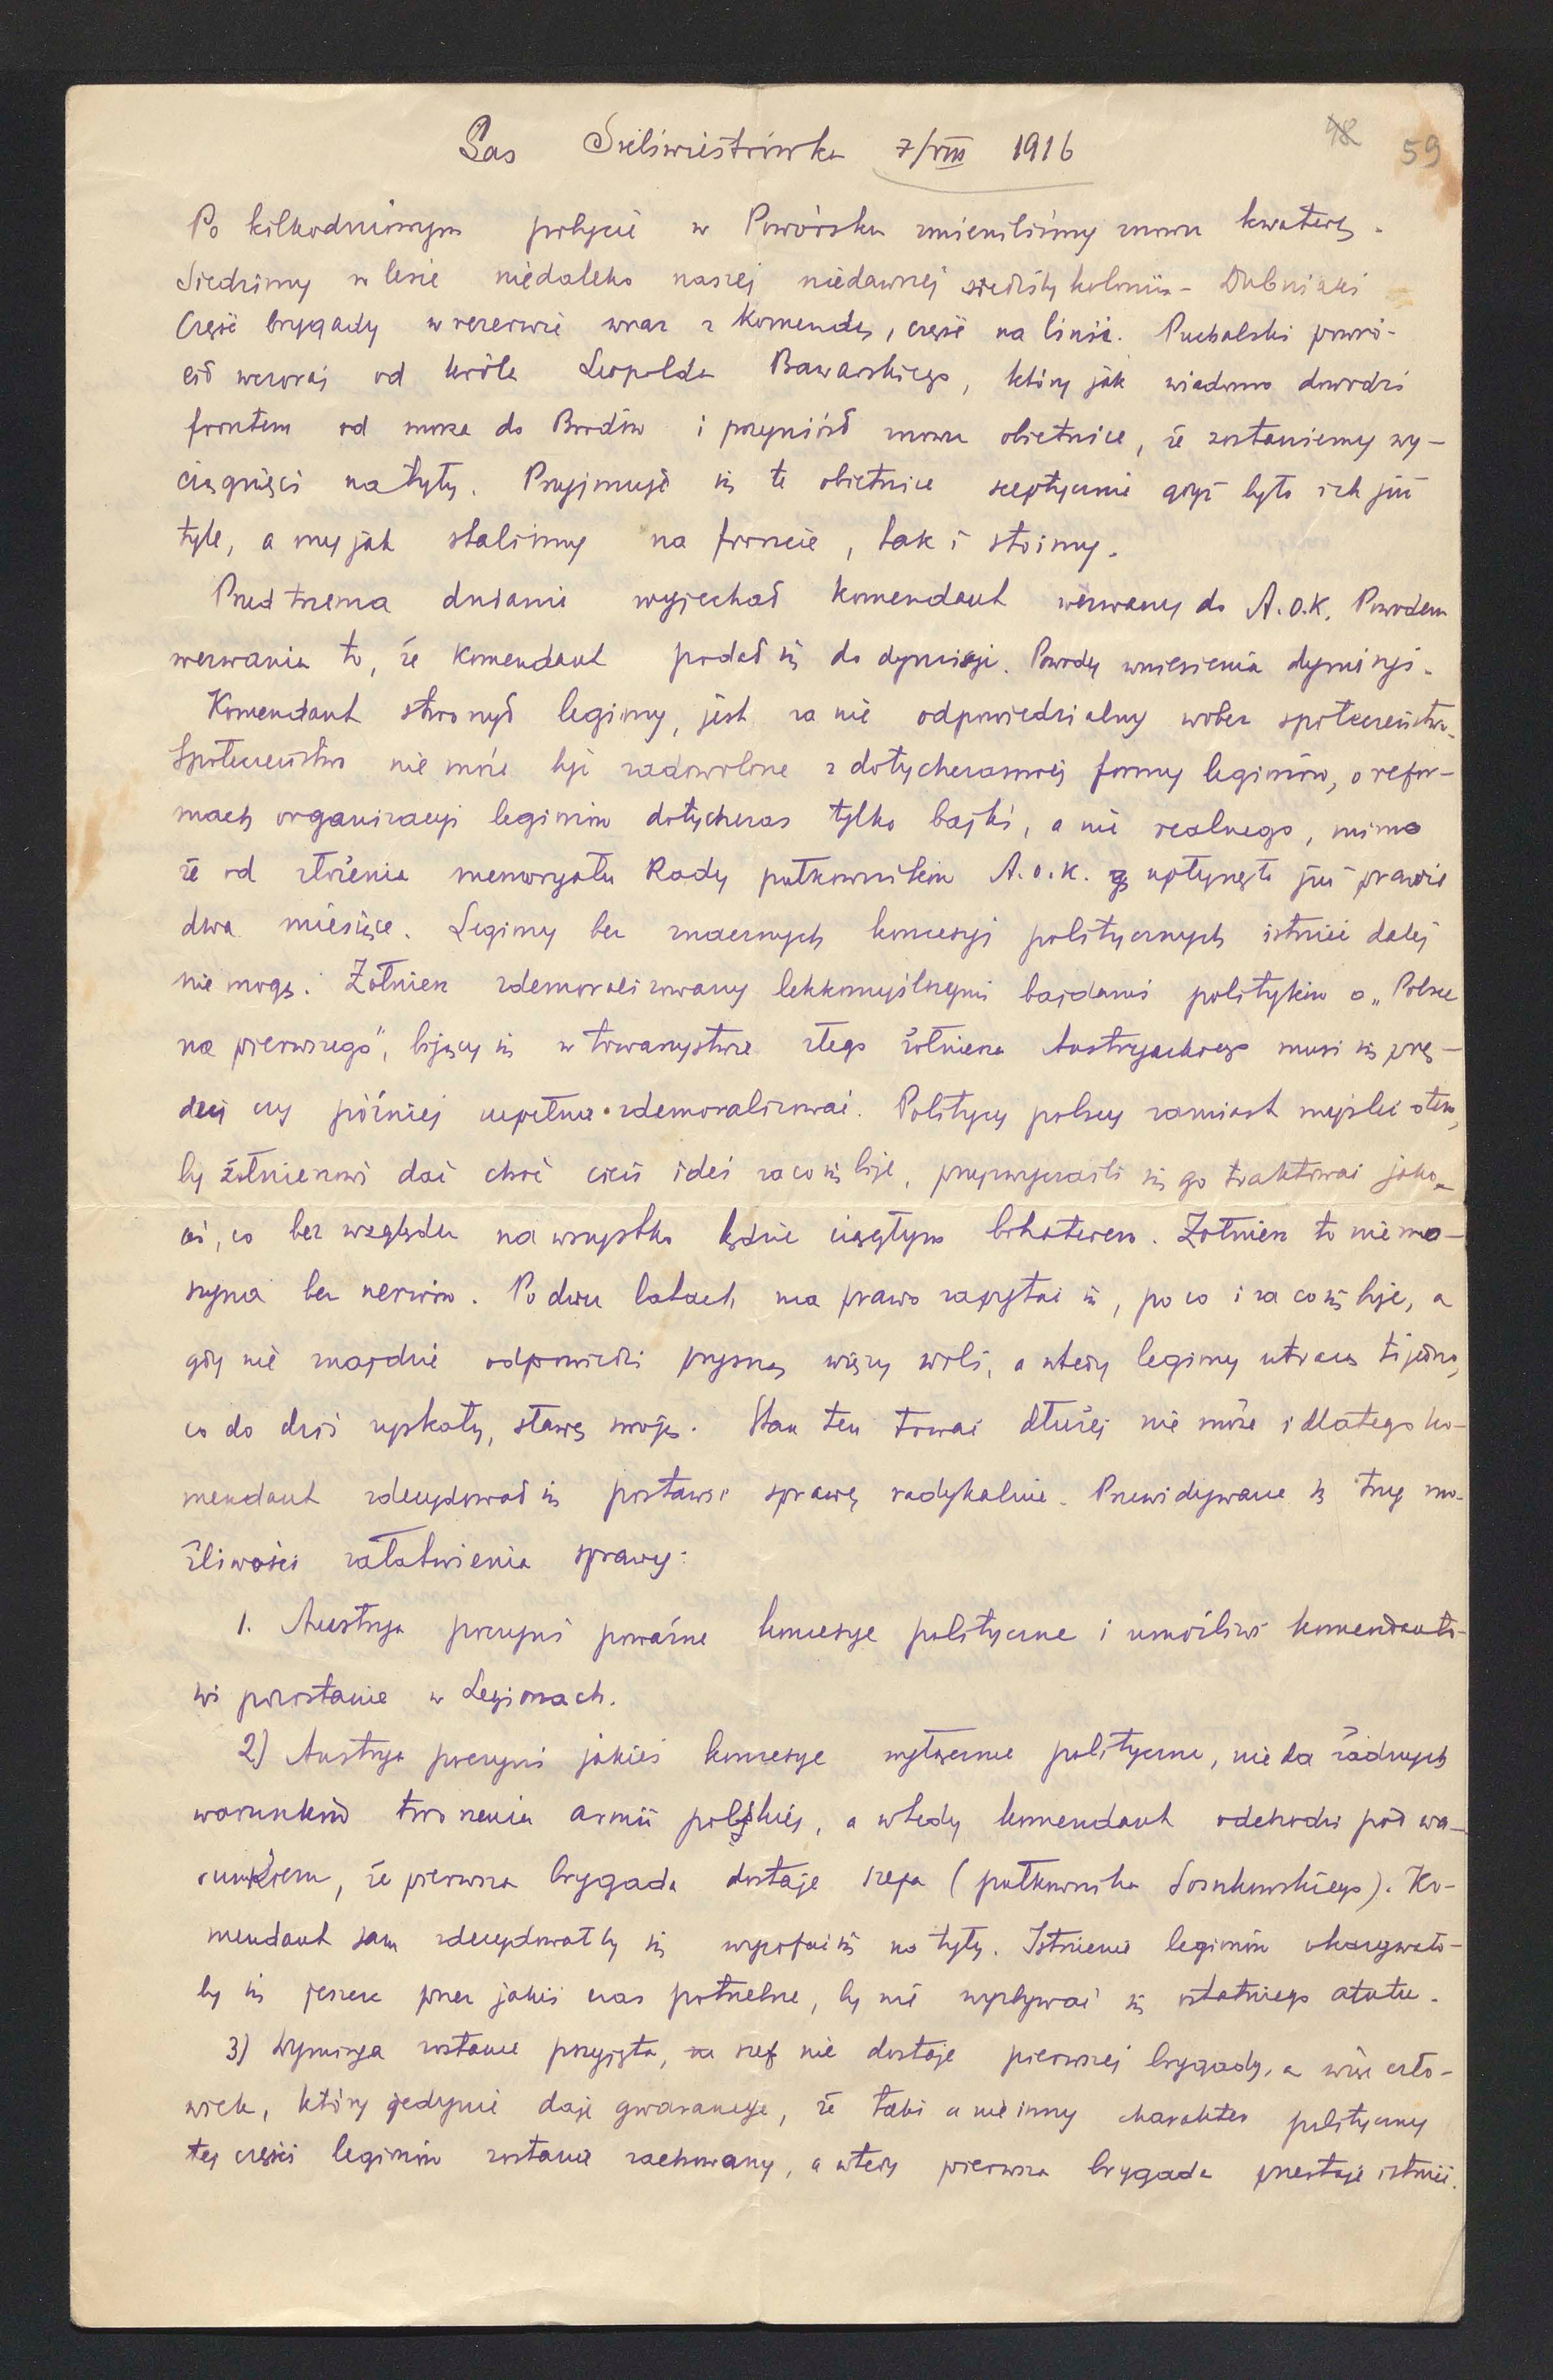 Las Sieliwiestrówka 7/VIII 1916
48 59
Po kilkodniowym pobycie w Powórsku zmieniliśmy znowu kwaterę.
Siedzimy w lesie niedaleko naszej niedawnej siedziby kolonii - Dubniaki
Część brygady w rezerwie wraz z Komendą, część na linii. Puchalski powró-
cił wczoraj od króla Leopolda Bawarskiego, który jak wiadomo dowodzi
frontem od morza do Brodów i przyniósł znowu obietnice, że zostaniemy wy-
ciągnięci na tyły. Przyjmuje się te obietnice sceptycznie gdyż było ich już
tyle, a my jak staliśmy na froncie, tak i stoimy.
Przed trzema dniami wyjechał komendant wezwany do A.O.K. Powodem
wezwania to, że Komendant podał się do dymisji. Powody wniesienia dymisyi.
Komendant stworzył legiony, jest za nie odpowiedzialny wobec społeczeństwa.
Społeczeństwo nie może być zadowolone z dotychczasowej formy legionów, o refor-
mach organizacyi legionów dotychczas tylko bajki, a nic realnego, mimo
że od złożenia memoryału Rady pułkowników A.O.K. upłynęło już prawie
dwa miesiące. Legiony bez znacznych koncesyi politycznych istnieć dalej
nie mogą. Żołnierz zdemoralizowany lekkomyślnymi bajdami polityków o „Polsce
na pierwszego", bijący się w towarzystwie złego żołnierza Austryackiego musi się prę-
dzej czy później zupełnie zdemoralizować. Politycy polscy zamiast myśleć o tem,
by żołnierzowi dać choć cień idei za co się bije, przyzwyczaili się go traktować jako
coś, co bez względu na wszystko będzie ciągłym bohaterem. Żołnierz to nie ma-
szyna bez nerwów. Po dwu latach ma prawo zapytać się, po co i za co się bije, a
gdy nie znajdzie odpowiedzi prysną więzy woli, a wtedy legiony utracą to jedno,
co do dziś zyskały, sławę swoją. Stan ten trwać dłużej nie może i dlatego ko-
mendant zdecydował się postawić sprawę radykalnie. Przewidywane są trzy mo-
żliwości załatwienia sprawy:
1. Austrya poczyni poważne koncesye polityczne i umożliwi komendanto-
wi pozostanie w Legionach.
2) Austrya poczyni jakieś koncesye wyłącznie polityczne, nie da żadnych
warunków tworzenia armii polskiej, a wtedy komendant odchodzi pod wa-
runkiem, że pierwsza brygada dostaje szefa (pułkownika Sosnkowskiego). Ko-
mendant sam zdecydowałby się wycofać się na tyły. Istnienie legionów okazywało-
by się jeszcze przez jakiś czas potrzebne, by nie wyzbywać się ostatniego atutu.
3) Dymisya zostanie przyjęta, szef nie dostaje pierwszej brygady, a więc czło-
wiek, który jedynie daje gwarancye, że taki a nie inny charakter polityczny
tej części legionów zostanie zachowany, a wtedy pierwsza brygada przestaje istnieć.